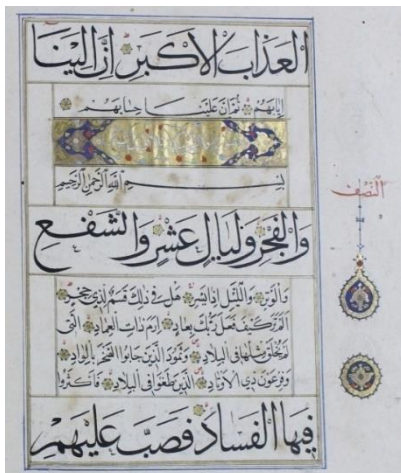 العَذَابَ الأَكْبَرَ إِنَّ إِلَيْنَا
إِيَابَهُمْ ثُمَّ إِنَّ عَلَيْنَا حِسَابَهُمْ
بِسْمِ اللَّهِ الرَّحْمَنِ الرَّحِيمِ
النصف
وَالْفَجْرِ وَلَيَالٍ عَشْرٍ وَالشَّفْعِ
وَالْوَتْرِ وَاللَّيْلِ إِذَا يَسْرِ هَلْ فِي ذَلِكَ قَسَمٌ لِذِي حِجْرٍ
أَلَمْ تَرَ كَيْفَ فَعَلَ رَبُّكَ بِعَادٍ إِرَمَ ذَاتِ الْعِمَادِ الَّتِي
لَمْ يُخْلَقْ مِثْلُهَا فِي الْبِلَادِ وَثَمُودَ الَّذِينَ جَابُوا الصَّخْرَ بِالْوَادِ
وَفِرْعَوْنَ ذِي الْأَوْتَادِ الَّذِينَ طَغَوْا فِي الْبِلَادِ فَأَكْثَرُوا
فِيهَا الْفَسَادَ فَصَبَّ عَلَيْهِمْ